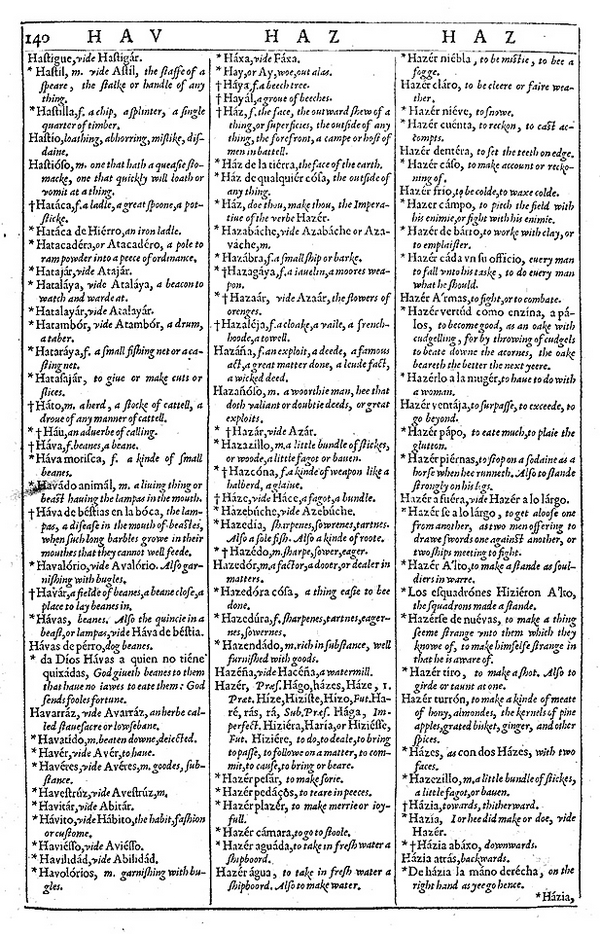 140 H A V H A Z H A Z
Hastigue, vide Hastigár.
* Hastil, m. vide Astil, the staffe of a
speare, the stalke or handle of any
thing.
* Hastilla, f. a chip, a splinter, a single
quarter of timber.
Hastio, loathing, abhorring, mislike, dis-
daine.
Hastióso, m. one that hath a queasie sto-
macke, one that quickly will loath or
vomit at a thing.
† Hatáca, f. a ladle, a great spoone, a pot-
sticke.
* Hatáca de Hiérro, an iron ladle.
* Hatacadéra, or Atacadéro, a pole to
ram powder into a peece of ordnance.
* Hatajár, vide Atajár.
* Hataláya, vide Ataláya, a beacon to
watch and warde at.
* Hatalayár, vide Atalayár.
* Hatambór, vide Atambór, a drum,
a taber.
* Hataráya, f. a small fishing net or a ca-
sting net.
* Hatasajár, to giue or make cuts or
slices.
† Háto, m. a herd, a flocke of cattell, a
droue of any manner of cattell.
* † Háu, an aduerbe of calling.
† Háva, f. beanes, a beane.
* Háva morisca, f. a kinde of small
beanes.
* Havádo animál, m. a liuing thing or
beast hauing the lampas in the mouth.
† Háva de béstias en la bóca, the lam-
pas, a disease in the mouth of beastes,
when such long barbles growe in their
mouthes that they cannot well feede.
* Havalório, vide Avalório. Also gar-
nishing with bugles.
† Havár, a fielde of beanes, a beane close, a
place to lay beanes in.
* Hávas, beanes. Also the quincie in a
beast, or lampas, vide Háva de béstia.
Hávas de pérro, dog beanes.
* da Dios Hávas a quien no tiéne
quixádas, God giueth beanes to them
that haue no iawes to eate them: God
sends fooles fortune.
Havarráz, vide Avarráz, an herbe cal-
led stauesacre or lowsebane.
* Havatido, m. beaten downe, deiected.
* Havér, vide Avér, to haue.
* Havéres, vide Avéres, m. goodes, sub-
stance.
* Havestrúz, vide Avestrúz, m.
* Havitár, vide Abitár.
* Hávito, vide Hábito, the habit, fashion
or custome.
* Haviésso, vide Aviésso.
* Havilidád, vide Abilidád.
* Havolórios, m. garnishing with bu-
gles.
* Háxa, vide Fáxa.
* Hay, or Ay, woe, out alas.
† Háya, f. a beech tree.
† Hayál, a groue of beeches.
† Ház, f. the face, the outward shew of a
thing, or superficies, the outside of any
thing, the forefront, a campe or host of
men in battell.
* Ház de la tiérra, the face of the earth.
* Ház de qualquiér cósa, the outside of
any thing.
* Ház, doe thou, make thou, the Impera-
tiue of the verbe Hazér.
* Hazabáche, vide Azabáche or Aza-
váche, m.
* Hazábra, f. a small ship or barke.
* † Hazagáya, f. a iauelin, a moores wea-
pon.
* † Hazaár, vide Azaár, the flowers of
orenges.
† Hazaléja, f. a cloake, a vaile, a french-
hoode, a towell.
Hazáña, f. an exploit, a deede, a famous
act, a great matter done, a leude fact,
a wicked deed.
Hazañóso, m. a woorthie man, hee that
doth valiant or doubtie deeds, or great
exploits.
* † Hazár, vide Azár.
* Hazazillo, m. a little bundle of stickes,
or woode, a little fagot or bauen.
* † Hazcóna, f. a kinde of weapon like a
halberd, a glaiue.
† Háze, vide Háce, a fagot, a bundle.
* Hazebúche, vide Azebúche.
* Hazedia, sharpenes, sowrenes, tartnes.
Also a sole fish. Also a kinde of roote.
* † Hazédo, m. sharpe, sower, eager.
Hazedór, m. a factor, a dooer, or dealer in
matters.
* Hazedóra cósa, a thing easie to bee
done.
* Hazedúra, f. sharpenes, tartnes, eager-
nes, sowernes.
* Hazendádo, m. rich in substance, well
furnished with goods.
Hazéña, vide Hacéña, a watermill.
Hazér, Præs. Hágo, házes, Háze, 1.
Præt. Híze, Hiziste, Hizo, Fut. Ha-
ré, rás, rá, Sub. Præs. Hága, Im-
perfect. Hiziéra, Haria, or Hiziésse,
Fut. Hiziére, to do, to deale, to bring
to passe, to follow on a matter, to com-
mit, to cause, to bring or beare.
* Hazér pesár, to make sorie.
* Hazér pedáços, to teare in peeces.
* Hazér plazér, to make merrie or ioy-
full.
* Hazér cámara, to go to stoole.
* Hazér aguáda, to take in fresh water a
shipboord.
Hazér água, to take in fresh water a
shipboord. Also to make water.
* Hazér niébla, to be mistie, to bee a
fogge.
Hazér cláro, to be cleere or faire wea-
ther.
* Hazér niéve, to snowe.
* Hazér cuénta, to reckon, to cast ac-
compts.
Hazér dentéra, to set the teeth on edge.
* Hazér cáso, to make account or recko-
ning of.
Hazér frio, to be colde, to waxe colde.
* Hazer cámpo, to pitch the field with
his enimie, or fight with his enimie.
* Hazér de bárro, to worke with clay, or
to emplaister.
* Hazér cáda vn su officio, euery man
to fall vnto his taske, to do euery man
what he should.
Hazér A'rmas, to fight, or to combate.
* Hazér vertúd como enzína, a pá-
los, to become good, as an oake with
cudgelling, for by throwing of cudgels
to beate downe the acornes, the oake
beareth the better the next yeere.
* Hazérlo a la mugér, to haue to do with
a woman.
Hazér ventája, to surpasse, to exceede, to
go beyond.
* Hazér pápo, to eate much, to plaie the
glutton.
* Hazér piérnas, to stop on a sodaine as a
horse when hee runneth. Also to stande
strongly on his legs.
Hazér a fuéra, vide Hazér a lo lárgo.
* Hazér se a lo lárgo, to get aloofe one
from another, as two men offering to
drawe swords one against another, or
two ships meeting to fight.
* Hazér A'lto, to make a stande as soul-
diers in warre.
* Los esquadrónes Hiziéron A'lto,
the squadrons made a stande.
* Hazérse de nuévas, to make a thing
seeme strange vnto them which they
knowe of, to make himselfe strange in
that he is aware of.
* Hazér tiro, to make a shot. Also to
girde or taunt at one.
Hazér turrón, to make a kinde of meate
of hony, almondes, the kernels of pine
apples, grated bisket, ginger, and other
spices.
* Házes, as con dos Házes, with two
faces.
* Hazezillo, m. a little bundle of stickes,
a little fagot, or bauen.
† Házia, towards, thitherward.
* Hazía, I or hee did make or doe, vide
Hazér.
* † Házia abáxo, downwards.
Házia atrás, backwards.
* De házia la máno derécha, on the
right hand as yee go hence.
* Házia,